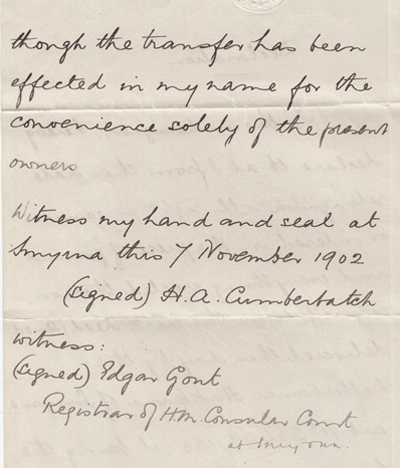 though the transfer has been
effected in my name for the
convenience solely of the present
owners
Witness my hand and seal at
Smyrna this 7 November 1902
(signed) H. A. Cumberbatch
witness:
(signed) Edgar Gout
Registrar of HM. Consular Court
at Smyrna.